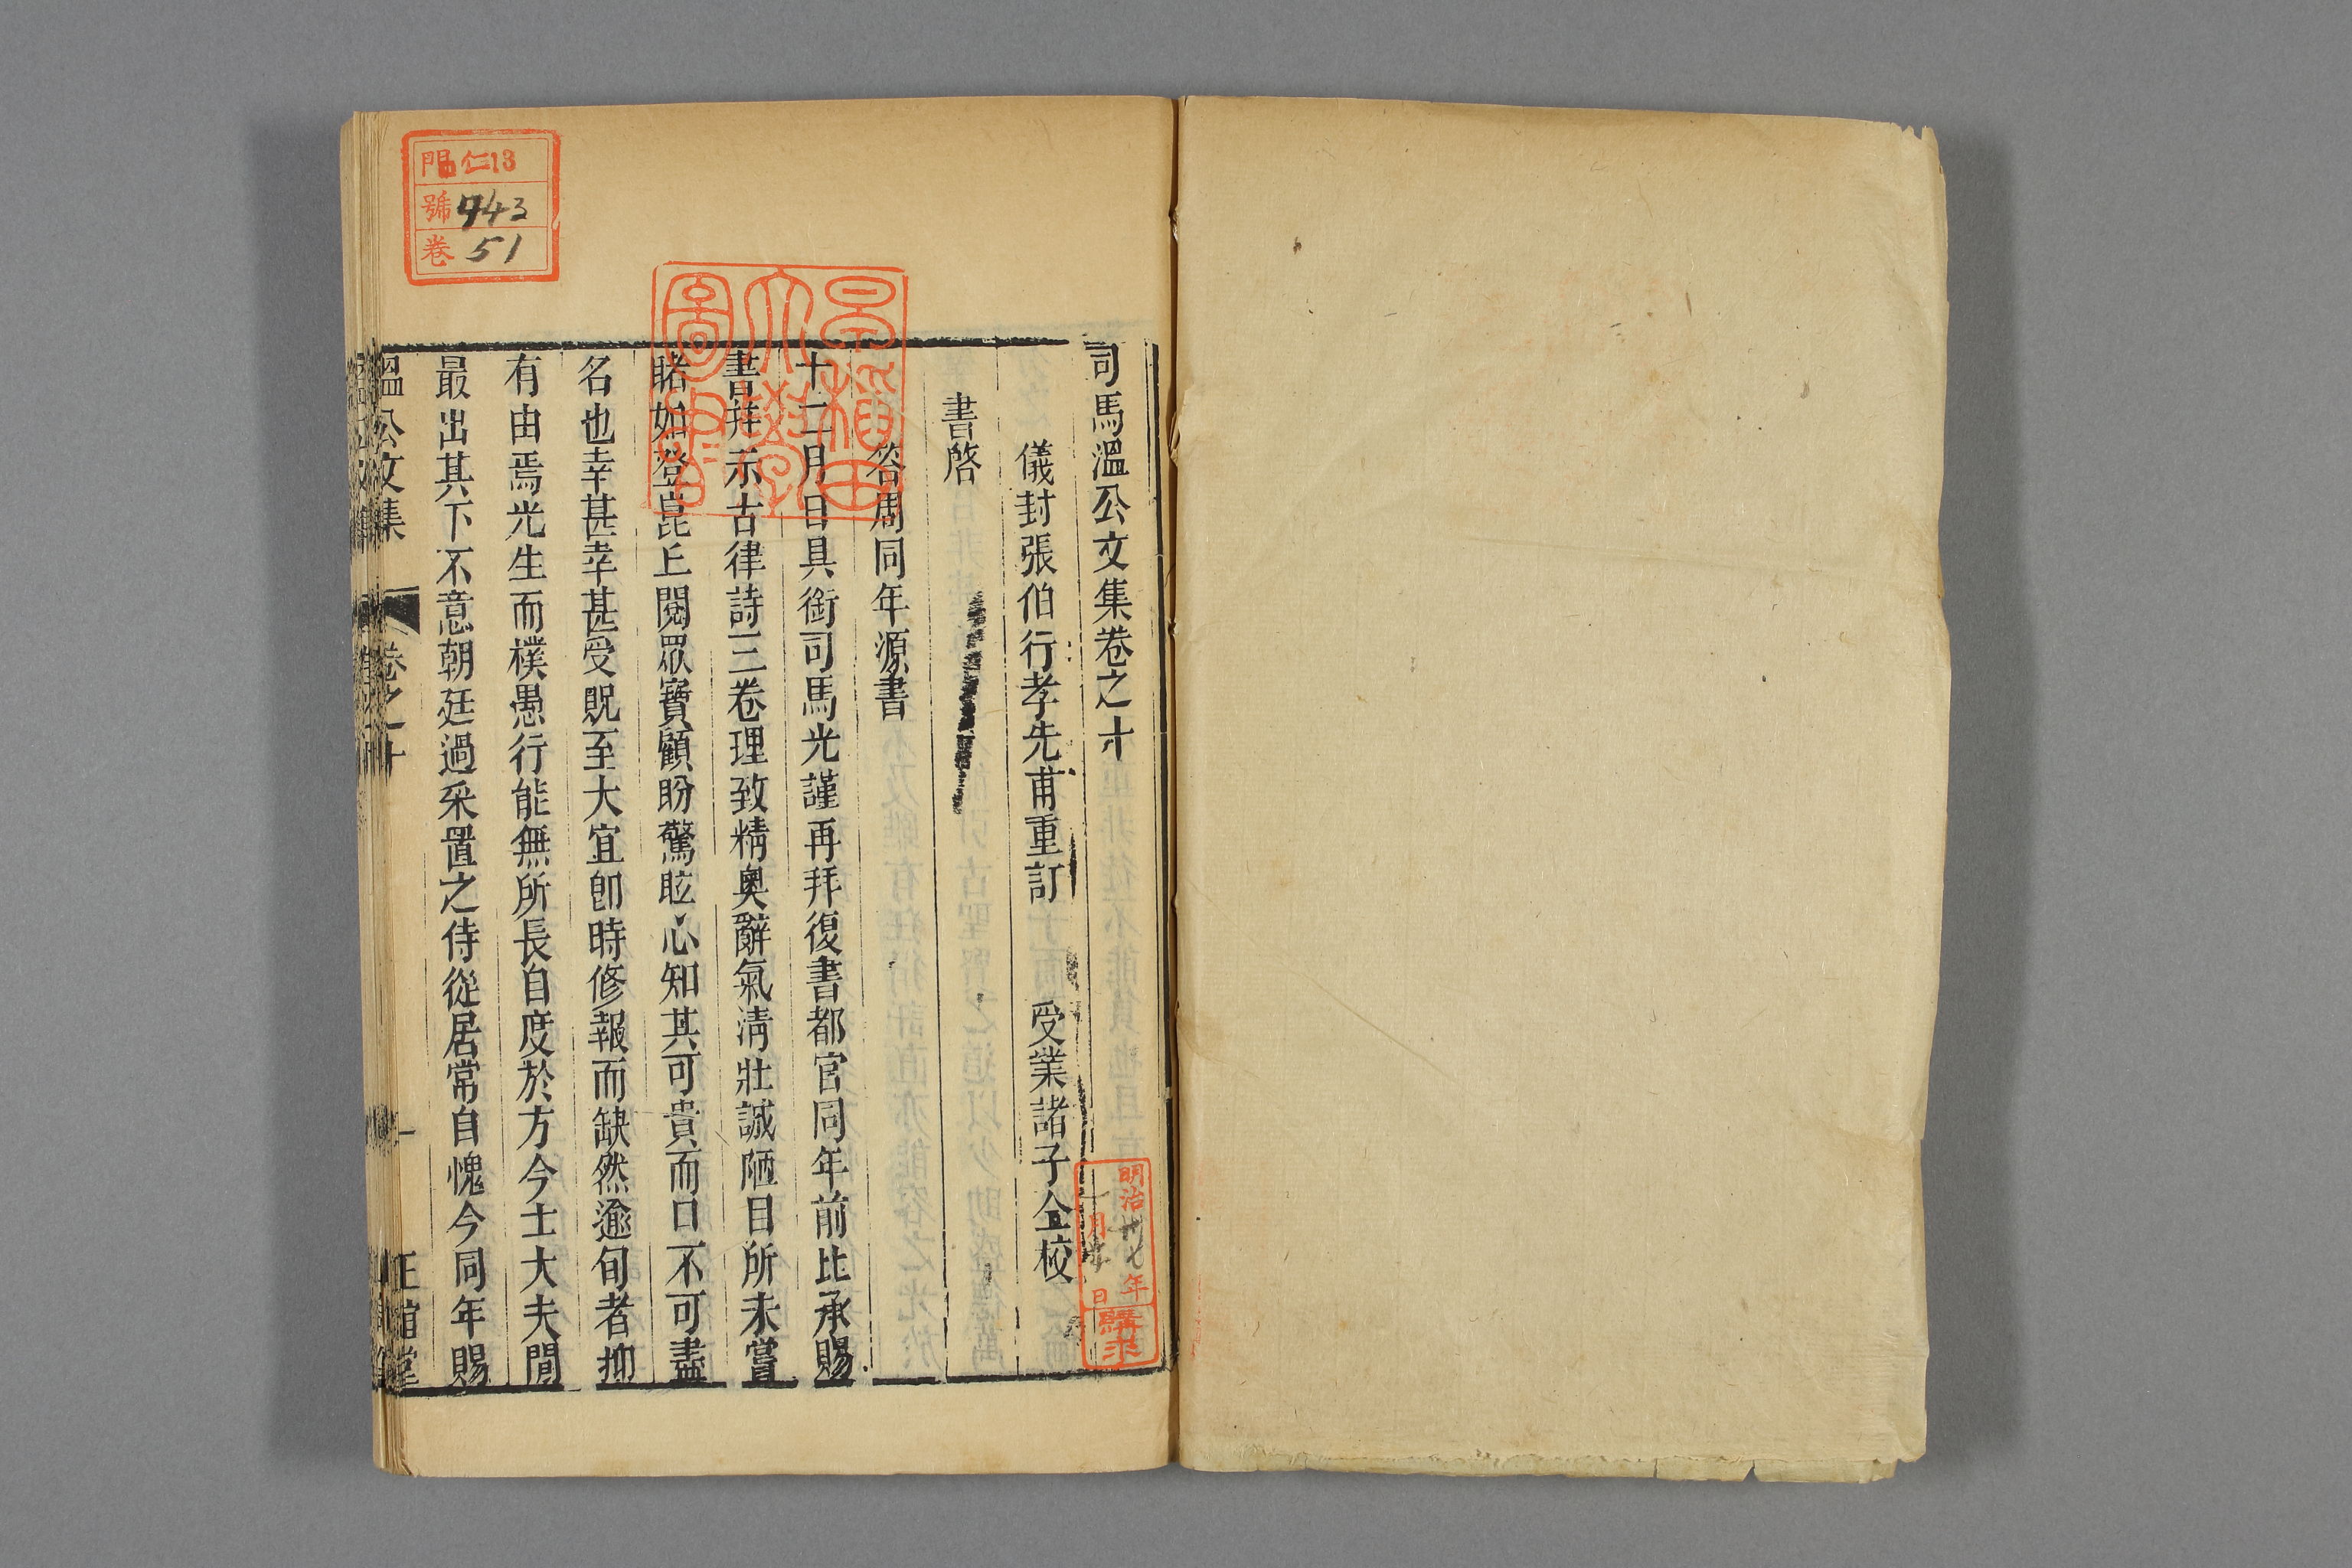 司馬溫公文集卷之十
儀封張伯行孝先甫重訂 受業諸子仝校
書啓
答周同年源書
十二月日具銜司馬光謹再拜復書都官同年前比承賜
書幷示古律詩三卷理致精奧辭氣淸壯誠陋目所未嘗
睹如登崑丘閱眾寶顧盼驚眩心知其可貴而口不可盡
名也幸甚幸甚受貺至大宜卽時修報而缺然逾旬者抑
有由焉光生而樸愚行能無所長自度於方今士大夫間
最出其下不意朝廷過采置之侍從居常自愧今同年賜
溫公文集 卷之十 一 正誼堂
早稻田
大學
圖書
門 仁13
號 743
卷 51
明治卅七年
一月 日
購求